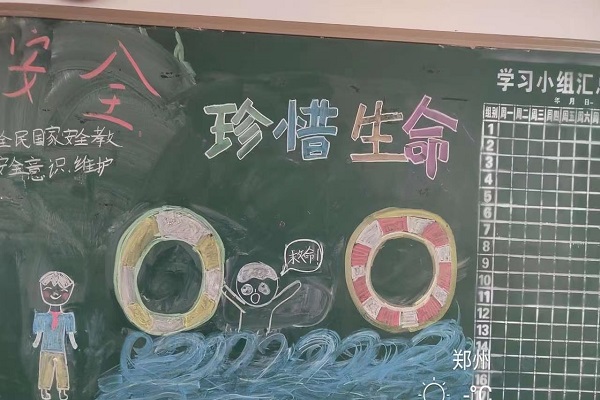 安全
全民国家安全教
安全意识.维护
珍惜生命
救命!
学习小组汇总
年 月 日
组别 周一 周二 周三 周四 周五 周六 周
1
2
3
4
5
6
7
8
9
10
11
12
13
14
15
16
郑州
-°C